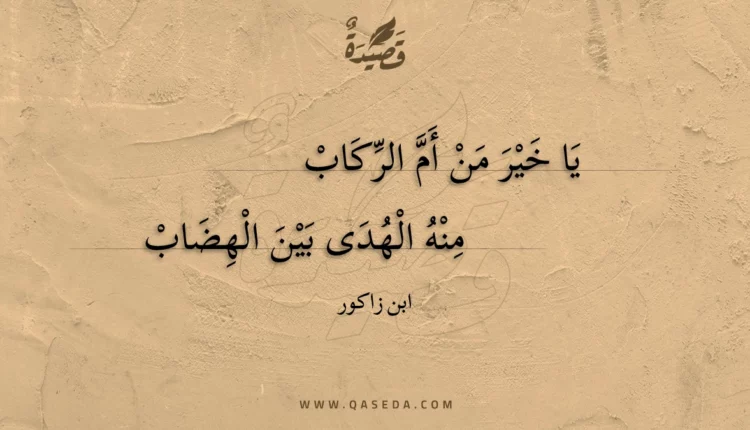 قَصِيْدَةٌ
يَا خَيْرَ مَنْ أَمَّ الرِّكَابْ
مِنْهُ الْهُدَى بَيْنَ الْهِضَابْ
ابن زاكور
WWW.QASEDA.COM